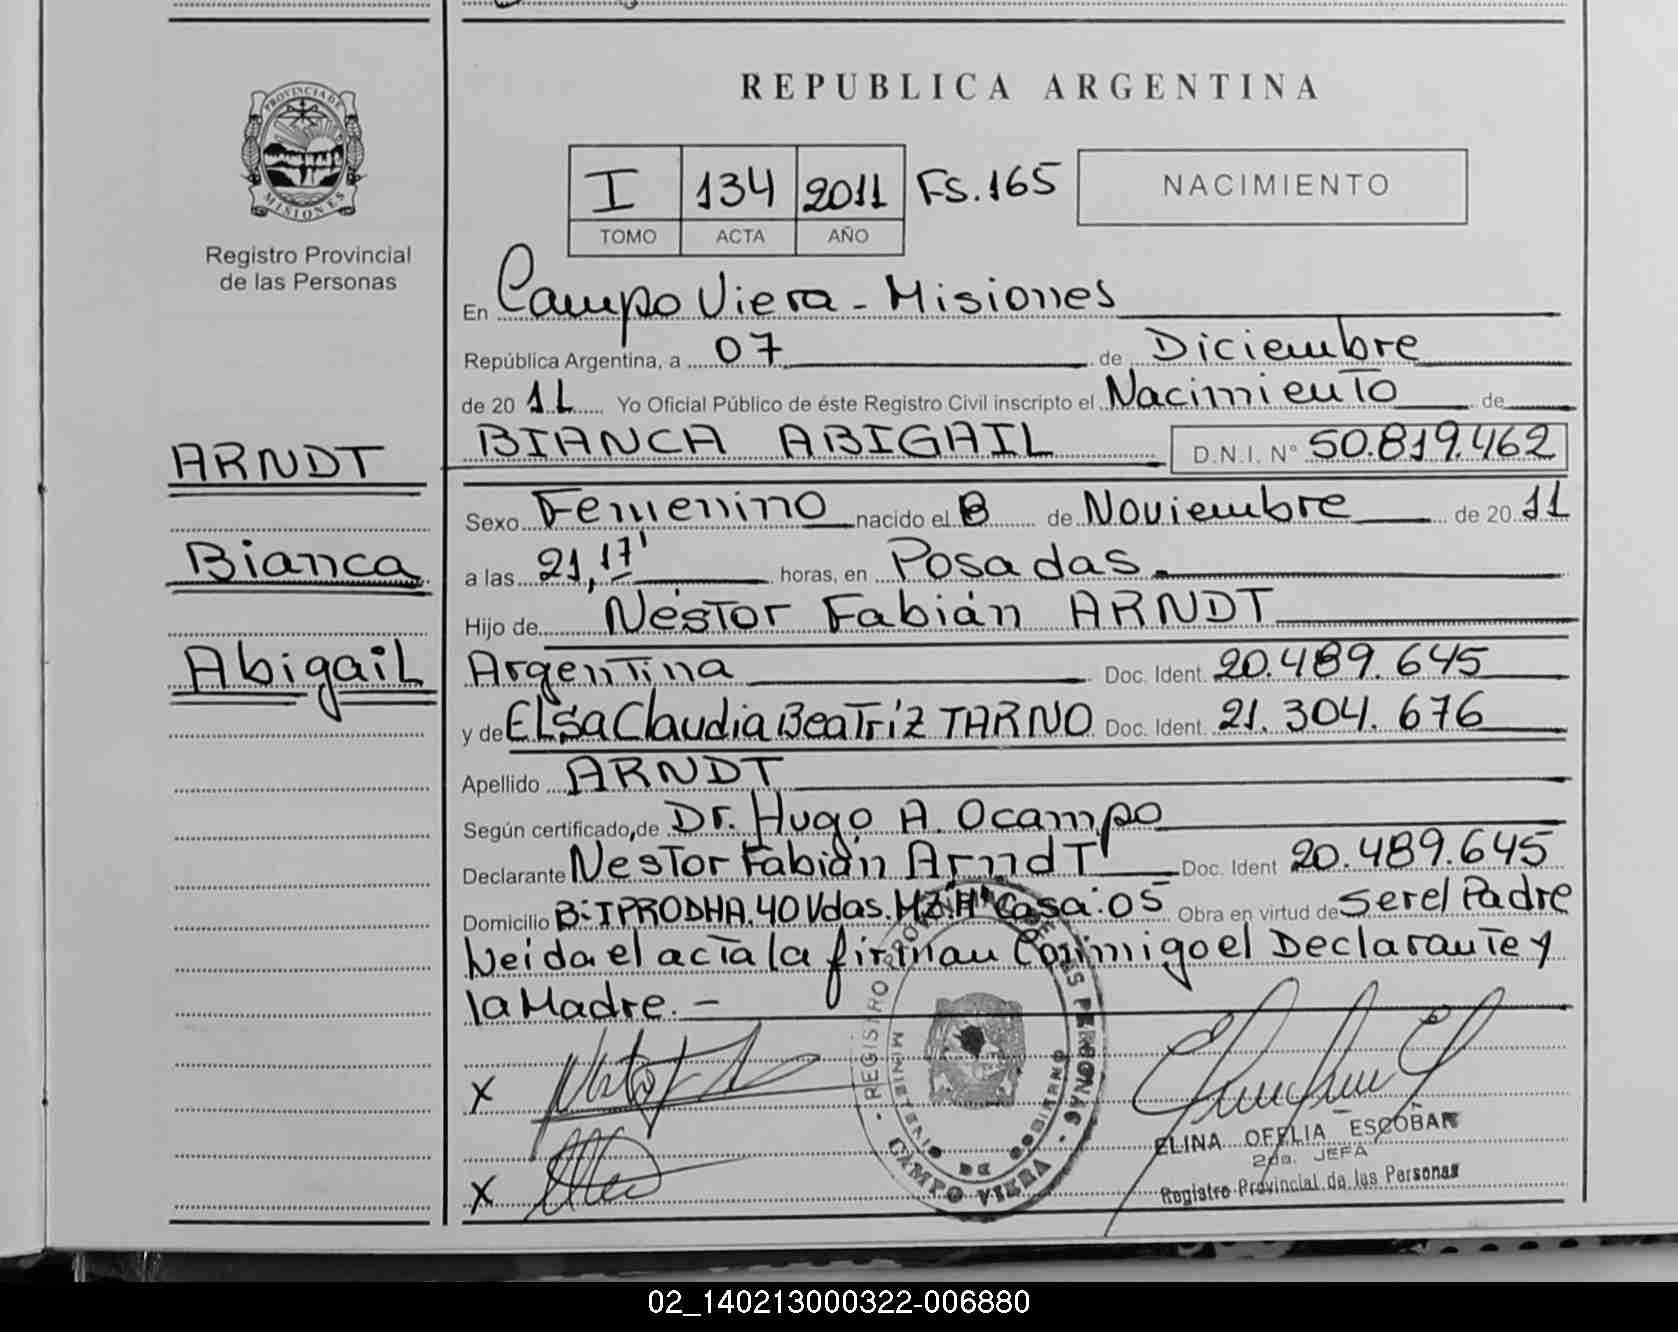 REPUBLICA ARGENTINA
PROVINCIA DE
MISIONES
Registro Provincial
de las Personas
I 134 2011 Fs. 165
TOMO ACTA AÑO
NACIMIENTO
En Campo Viera - Misiones
República Argentina, a 07 de Diciembre
de 20 11 Yo Oficial Público de éste Registro Civil inscripto el Nacimiento de
BIANCA ABIGAIL D.N.I. N° 50.819.462
ARNDT
Bianca
Abigail
Sexo Femenino nacido el 8 de Noviembre de 20 11
a las 21,17' horas, en Posadas.
Hijo de Néstor Fabián ARNDT
Argentina Doc. Ident. 20.489.645
y de Elsa Claudia Beatríz TARNO Doc. Ident. 21.304.676
Apellido ARNDT
Según certificado, de Dr. Hugo A. Ocampo
Declarante Néstor Fabián Arndt Doc. Ident 20.489.645
Domicilio B: IPRODHA. 40 Vdas. MZ."A" Casa: 05 Obra en virtud de Ser el Padre
Leida el acta la firman Conmigo el Declarante y
la Madre. -
X
X
REGISTRO PROVINCIAL DE LAS PERSONAS
MINISTERIO DE GOBIERNO
CAMPO VIERA
ELINA OFELIA ESCOBAR
2da. JEFA
Registro Provincial de las Personas
02_140213000322-006880